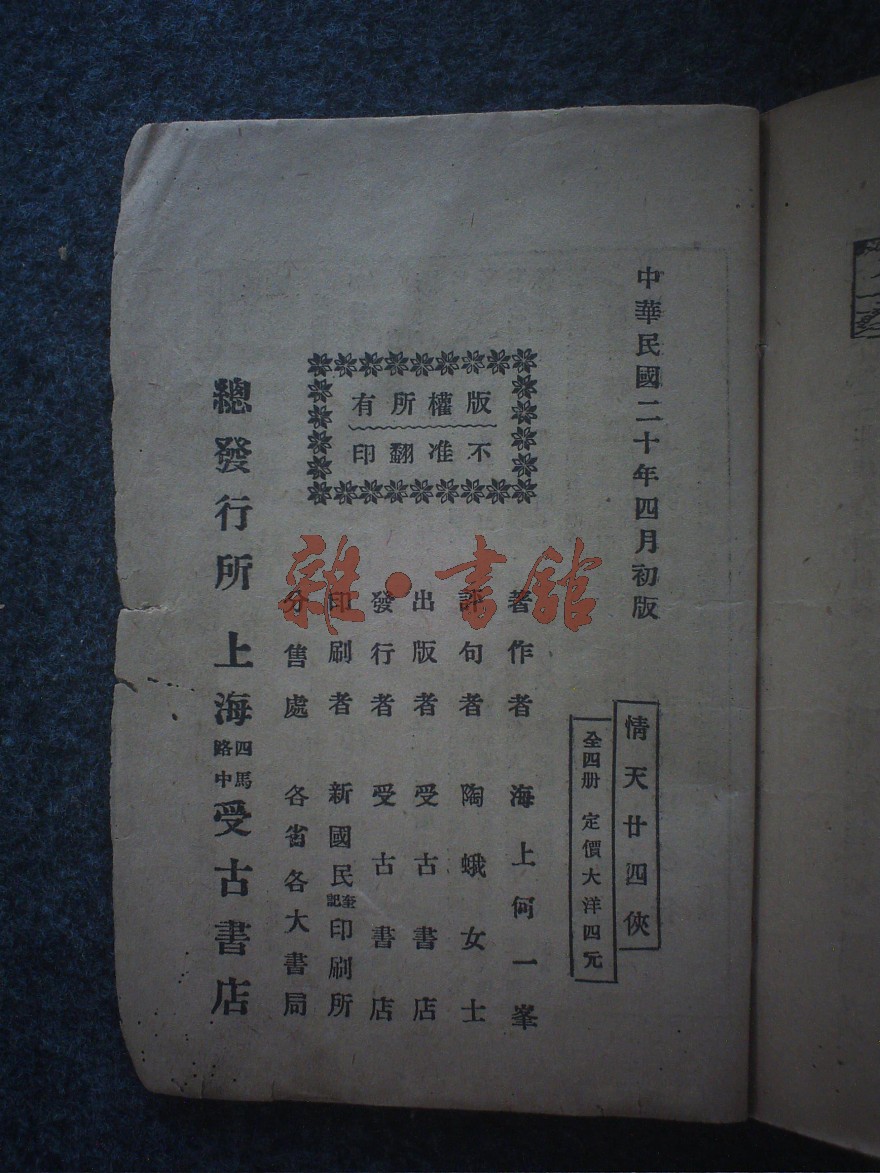 中華民國二十年四月初版
情天廿四俠
全四册 定價大洋四元
版權所有
不准翻印
著作者 海上何一峯
評句者 陶蛾女士
出版者 受古書店
發行者 受古書店
印刷者 新國民奎記印刷所
分售處 各省各大書局
總發行所 上海四馬路中受古書店
雜·書館